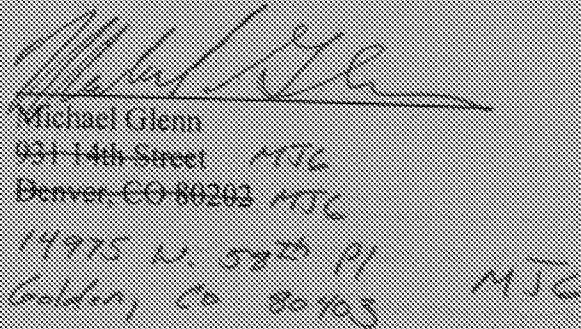 Michael Glenn
931 14th Street MJG
Denver, CO 80202 MJG
14975 W. 58th Pl
Golden, Co 80403 MJG